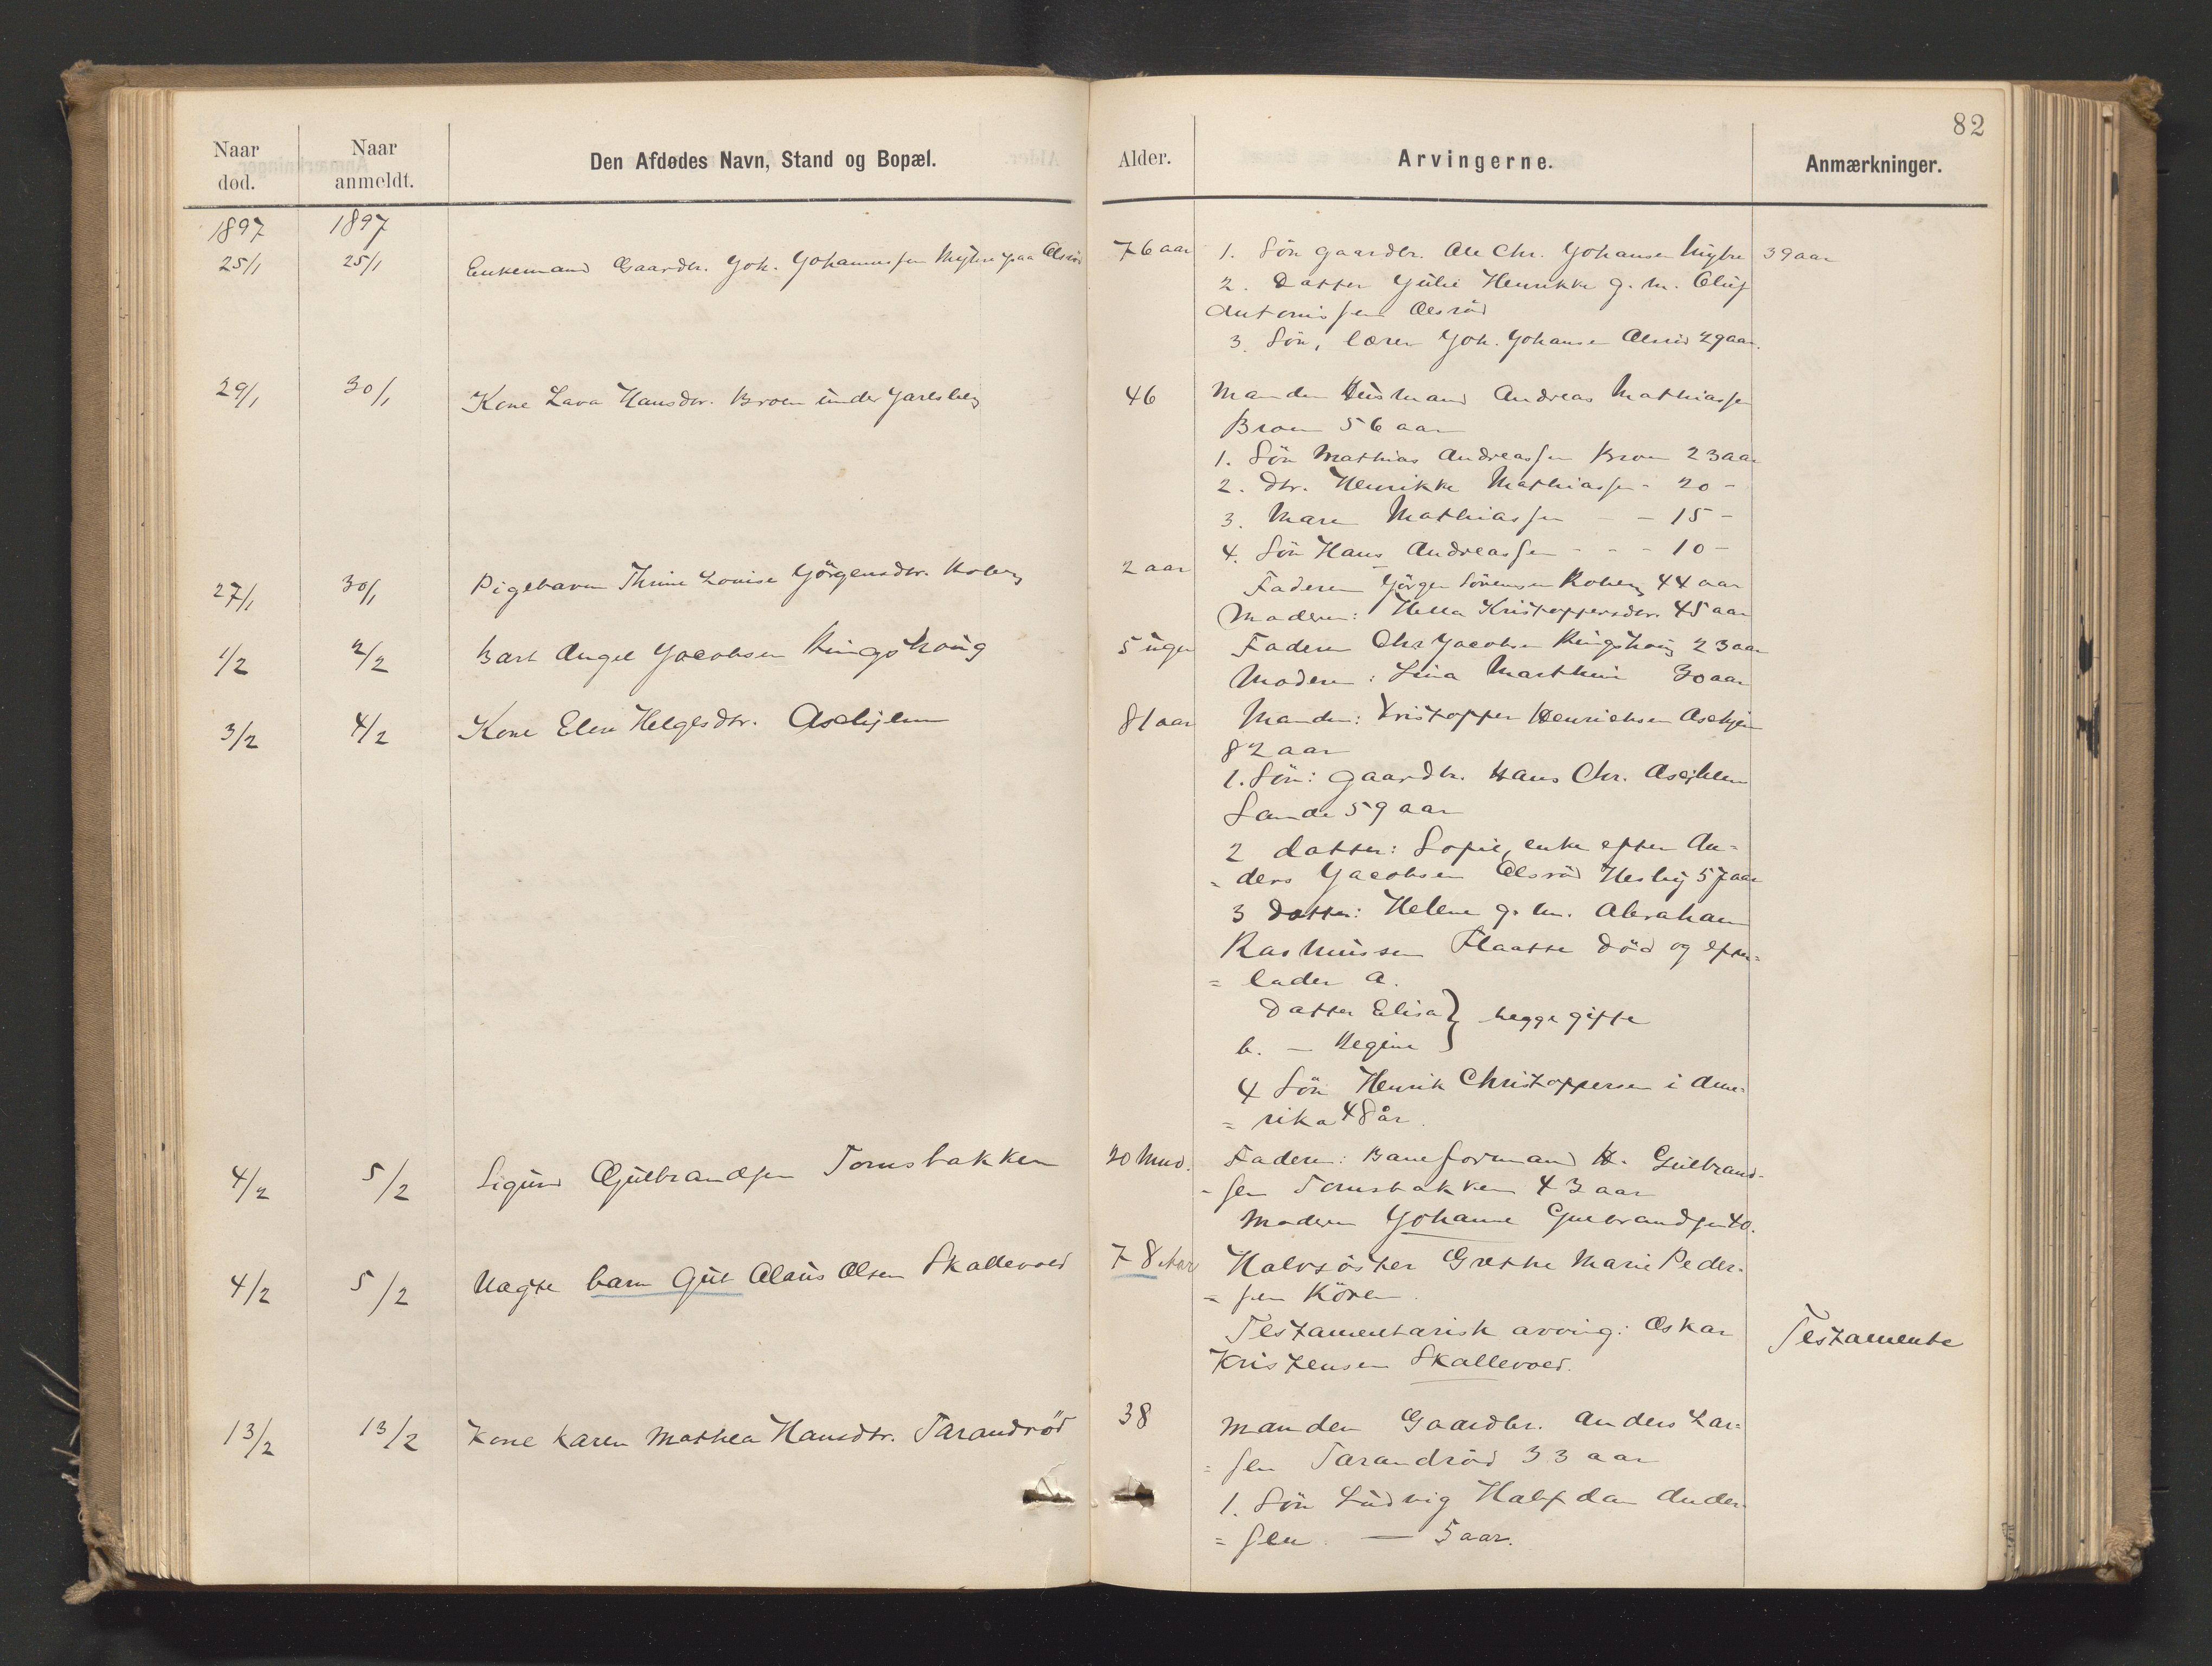 82
Naar død.
Naar anmeldt.
Den Afdødes Navn, Stand og Bopæl.
Alder.
Arvingerne.
Anmærkninger.
1897 1897
25/1 25/1 Enkemand Gaardbr. Joh. Johannessen Myhre paa Olsrød 76 aar
1. Sön gaardbr. Ole Chr. Johansen Myhre 39 aar
2. Datter Julie Henrikke g. m. Oluf
Antonissen Olsröd
3. Sön, lærer Joh. Johansen Olsröd 29 aar.
29/1 30/1 Kone Lava Hansdtr. Broen under Jarlsberg 46
Manden Husmand Andreas Mathiassen
Broen 56 aar
1. Sön Mathias Andreassen Broen 23 aar
2. Dtr. Henrikke Mathiassen - 20 -
3. Maren Mathiassen - - 15 -
4. Sön Hans Andreassen - - - 10 -
27/1 30/1 Pigebarn Thrine Louise Jörgensdtr. Roberg 2 aar
Faderen Jörgen Sörensen Roberg 44 aar
Moderen: Hella Kristoffersdtr. 45 aar
1/2 2/2 Bart Angel Jacobsen Ringshoug 5 uger
Faderen Chr Jacobsen Ringshoug 23 aar
Moderen: Lina Marthini 30 aar
3/2 4/2 Kone Elen Helgesdtr. Aschjem 81 aar
Manden: Kristoffer Henrichsen Aschjem
82 aar
1. Sön: gaardbr. Hans Chr. Aschjem
Sande 59 aar
2 datter: Sofie, enke efter An=
= ders Jacobsen Olsröd Hesby 57 aar
3 Datter: Helene g. m. Abraham
Rasmussen Flaatte död og efter=
= lader a.
Datter Elisa } begge gifte
b. — Regine
4 Sön Henrik Christoffersen i Ame=
= rika 48 år.
4/2 5/2 Sigurd Gulbrandsen Tomsbakken 20 Mnd.
Faderen: Baneformand H. Gulbrand-
- sen Tomsbakken 43 aar
Moderen Johanne Gulbrandsen 40.
4/2 5/2 Uægte barn Gut Olaus Olsen Skallevold 78 Aar
Halvsöster Grethe Marie Peder-
= sen Kören.
Testamentarisk arving: Oskar
Kristensen Skallevold. Testamente
13/2 13/2 Kone Karen Mathea Hansdtr. Tarandröd 38
Manden Gaardbr. Anders Lar=
= sen Tarandröd 33 aar
1. Sön Ludvig Halfdan Ander-
= sen. — 5 aar.